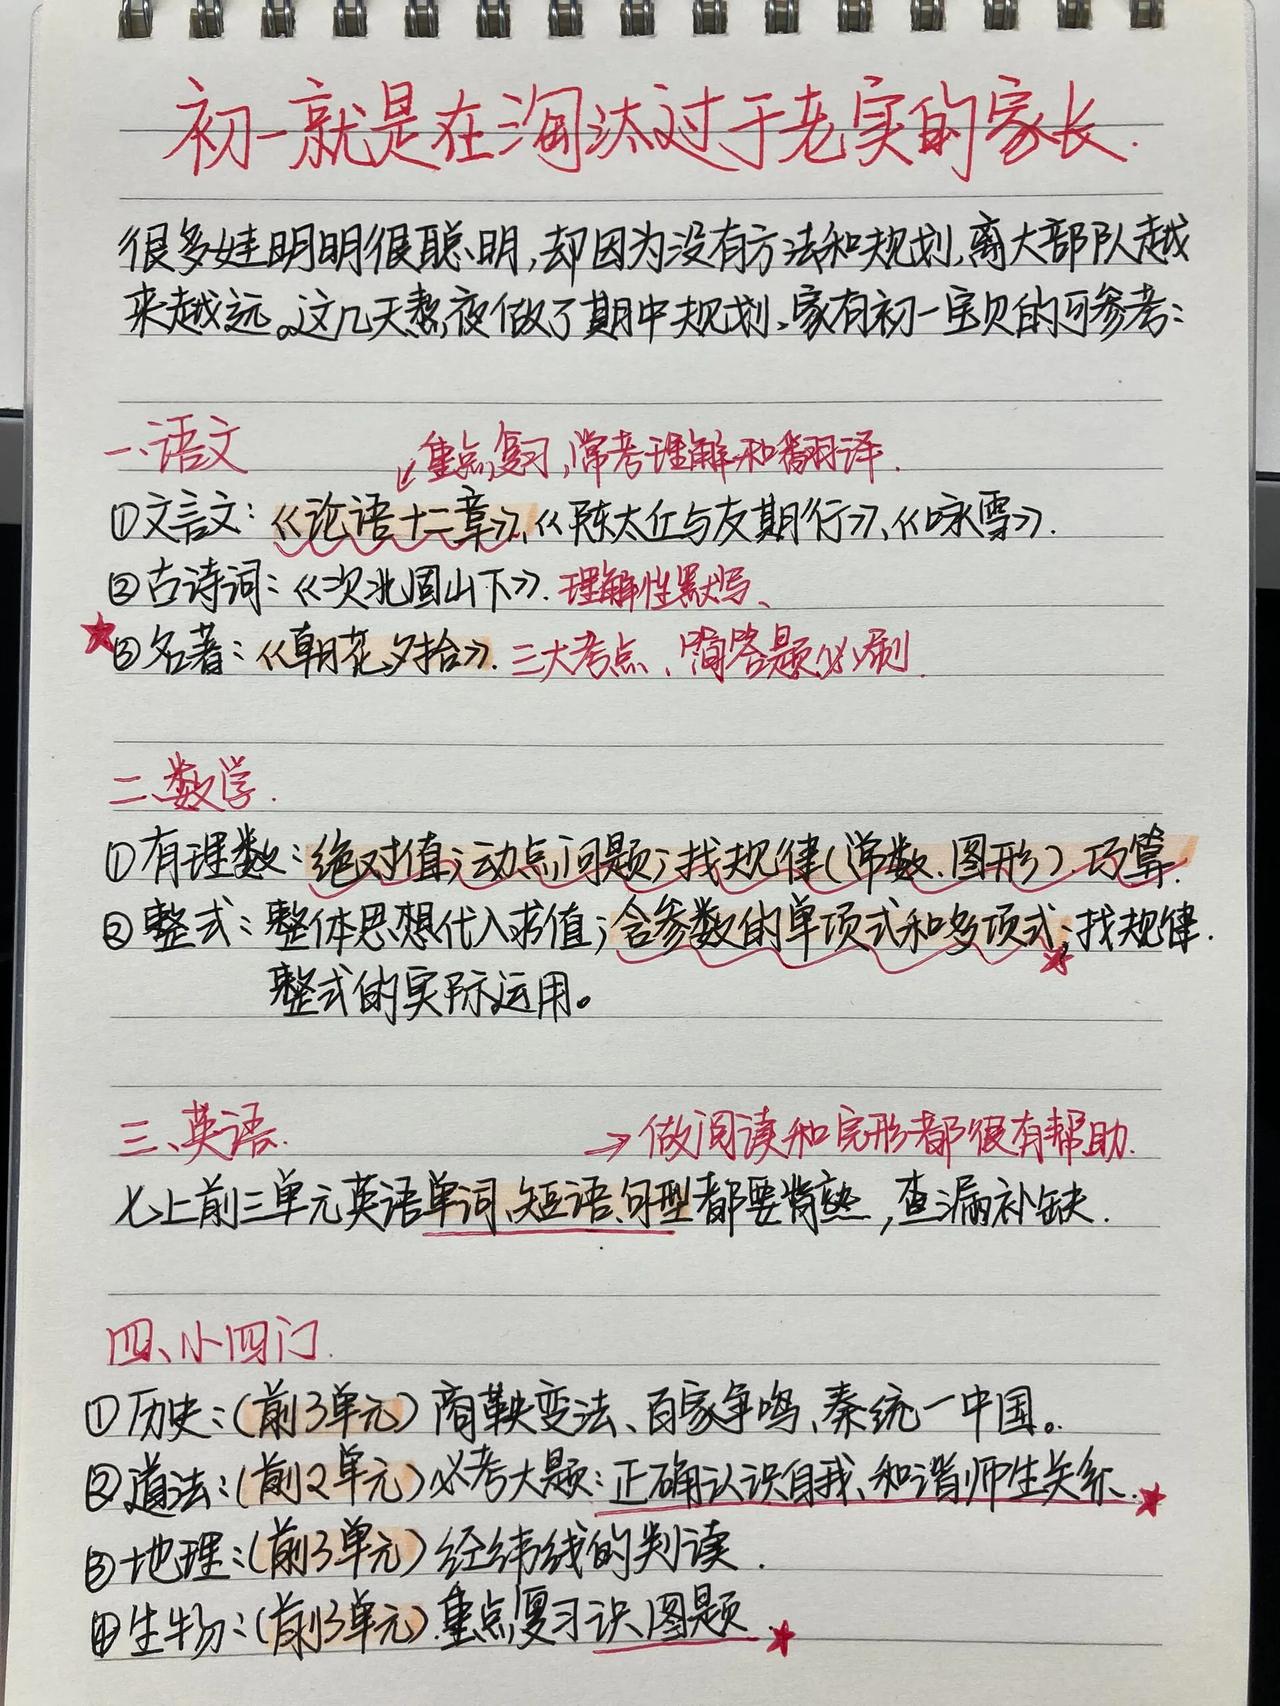 初一就是在淘汰过于老实的家长.
很多娃明明很聪明,却因为没有方法和规划,离大部队越
来越远。这几天熬夜做了期中规划、家有初一宝贝的可参考:
一、语文
重点复习,常考理解和翻译.
①文言文:《论语十二章》、《陈太丘与友期行》、《咏雪》.
②古诗词:《次北固山下》.理解性默写、
③名著:《朝花夕拾》.三大考点、简答题必刷.
二、数学.
①有理数:绝对值;动点问题;找规律(常数、图形).巧算.
②整式:整体思想代入求值;含参数的单项式和多项式;找规律.
整式的实际运用。
三、英语.
→做阅读和完形都很有帮助.
七上前三单元英语单词、短语、句型都要背熟,查漏补缺.
四、小四门.
①历史:(前3单元)商鞅变法、百家争鸣、秦统一中国。
②道法:(前2单元)必考大题:正确认识自我、和谐师生关系.
③地理:(前3单元)经纬线的判读.
④生物:(前3单元).重点复习识图题